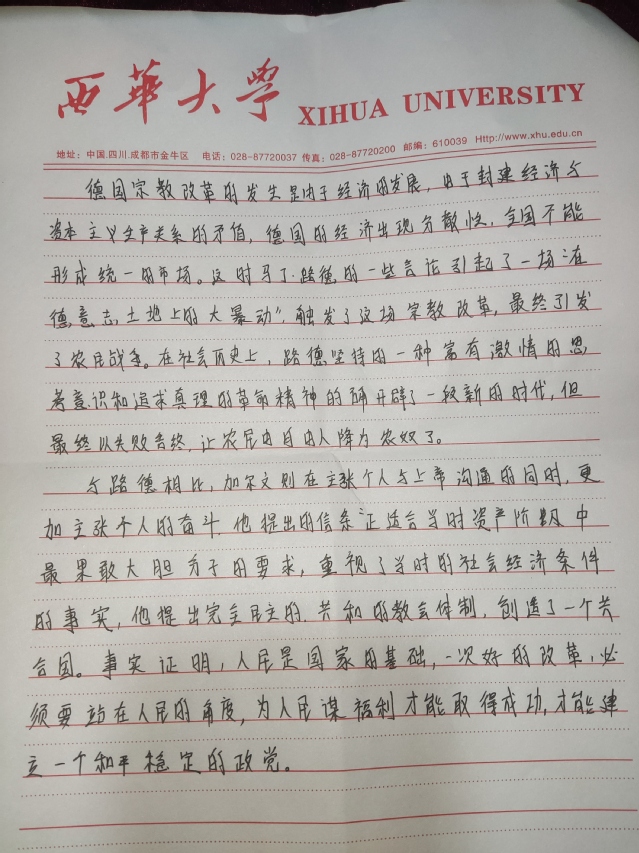 西华大学 XIHUA UNIVERSITY
地址：中国.四川.成都市金牛区 电话：028-87720037 传真：028-87720200 邮编：610039 Http://www.xhu.edu.cn
德国宗教改革的发生是由于经济的发展，由于封建经济与
资本主义生产关系的矛盾，德国的经济出现分散性，全国不能
形成统一的市场。这时马丁·路德的一些言论引起了一场"在
德意志土地上的大暴动"，触发了这场宗教改革，最终引发
了农民战争。在社会历史上，路德坚持的一种富有激情的思
考意识和追求真理的革命精神的确开辟了一段新的时代，但
最终以失败告终，让农民由自由人降为农奴了。
与路德相比，加尔文则在主张个人与上帝沟通的同时，更
加主张个人的奋斗，他提出的信条"正适合当时资产阶级中
最果敢大胆分子的要求，重视了当时的社会经济条件
的事实，他提出完全民主的、共和的教会体制，创造了一个共
合国。事实证明，人民是国家的基础，一次好的改革，必
须要站在人民的角度，为人民谋福利才能取得成功，才能建
立一个和平稳定的政党。